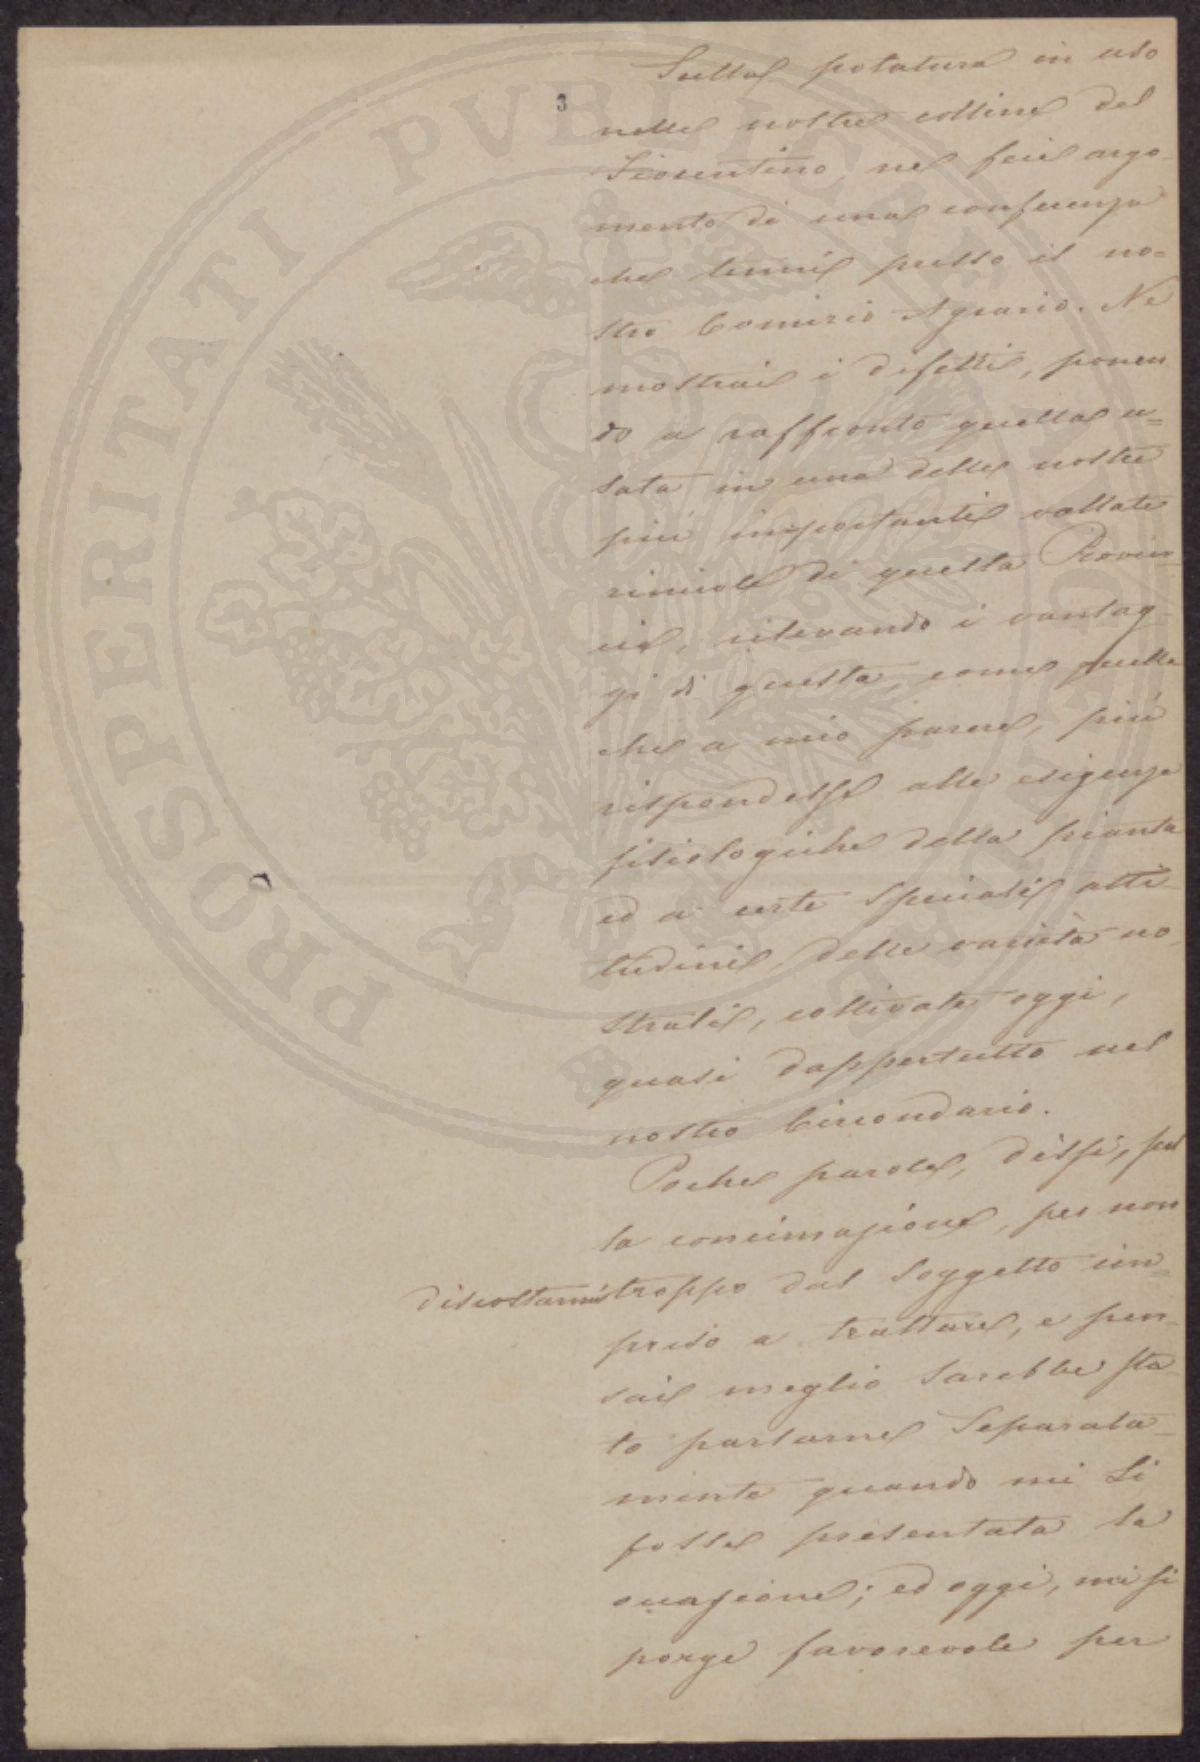 3
Sulla potatura in uso
nelle nostre colline del
Fiorentino, ne feci argo-
mento di una conferenza
che tenni presso il no=
stro Comizio Agrario. Ne
mostrai i difetti, ponen
do a raffronto quella u=
sata in una delle nostre
più importanti vallate
vinicole di questa Provin-
cia, rilevando i vantag-
gi di questa, come quella
che a mio parere, più
rispondesse alle esigenze
fisiologiche della pianta
ed a certe speciali atti-
tudini, delle varietà no-
strali, coltivate oggi,
quasi dappertutto nel
nostro Circondario.
Poche parole, dissi, sul
la concimazione, per non
discostarmi troppo dal soggetto im=
preso a trattare, e pen-
sai meglio sarebbe sta-
to parlarne separata-
mente quando mi si
fosse presentata la
occasione; ed oggi, mi si
porge favorevole per
PROSPERITATI PVBLICAE